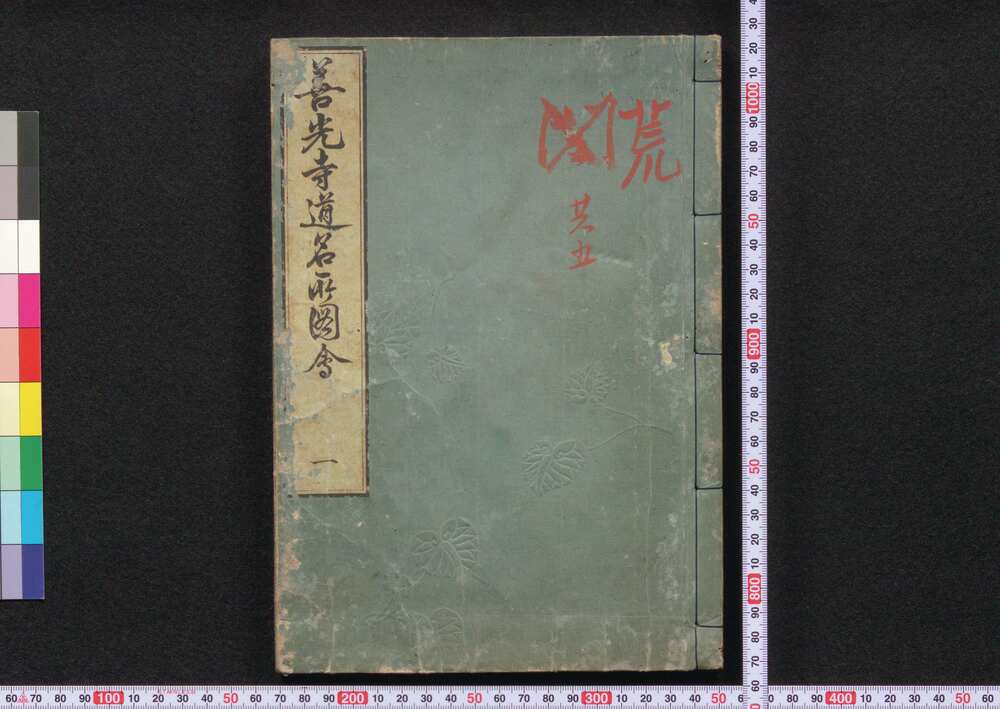 善光寺道名所圖會
一
荒
共五
60 70 80 90 100 10 20 30 40 50 60 70 80 90 200 10 20 30 40 50 60 70 80 90 300 10 20 30 40 50
70 80 90 400 10 20 30 40 50 60
30 20 10 1000 90 80 70 60 50 40 30 20 10 900 90 80 70 60 50 40 30 20 10 800 90 80 70 60